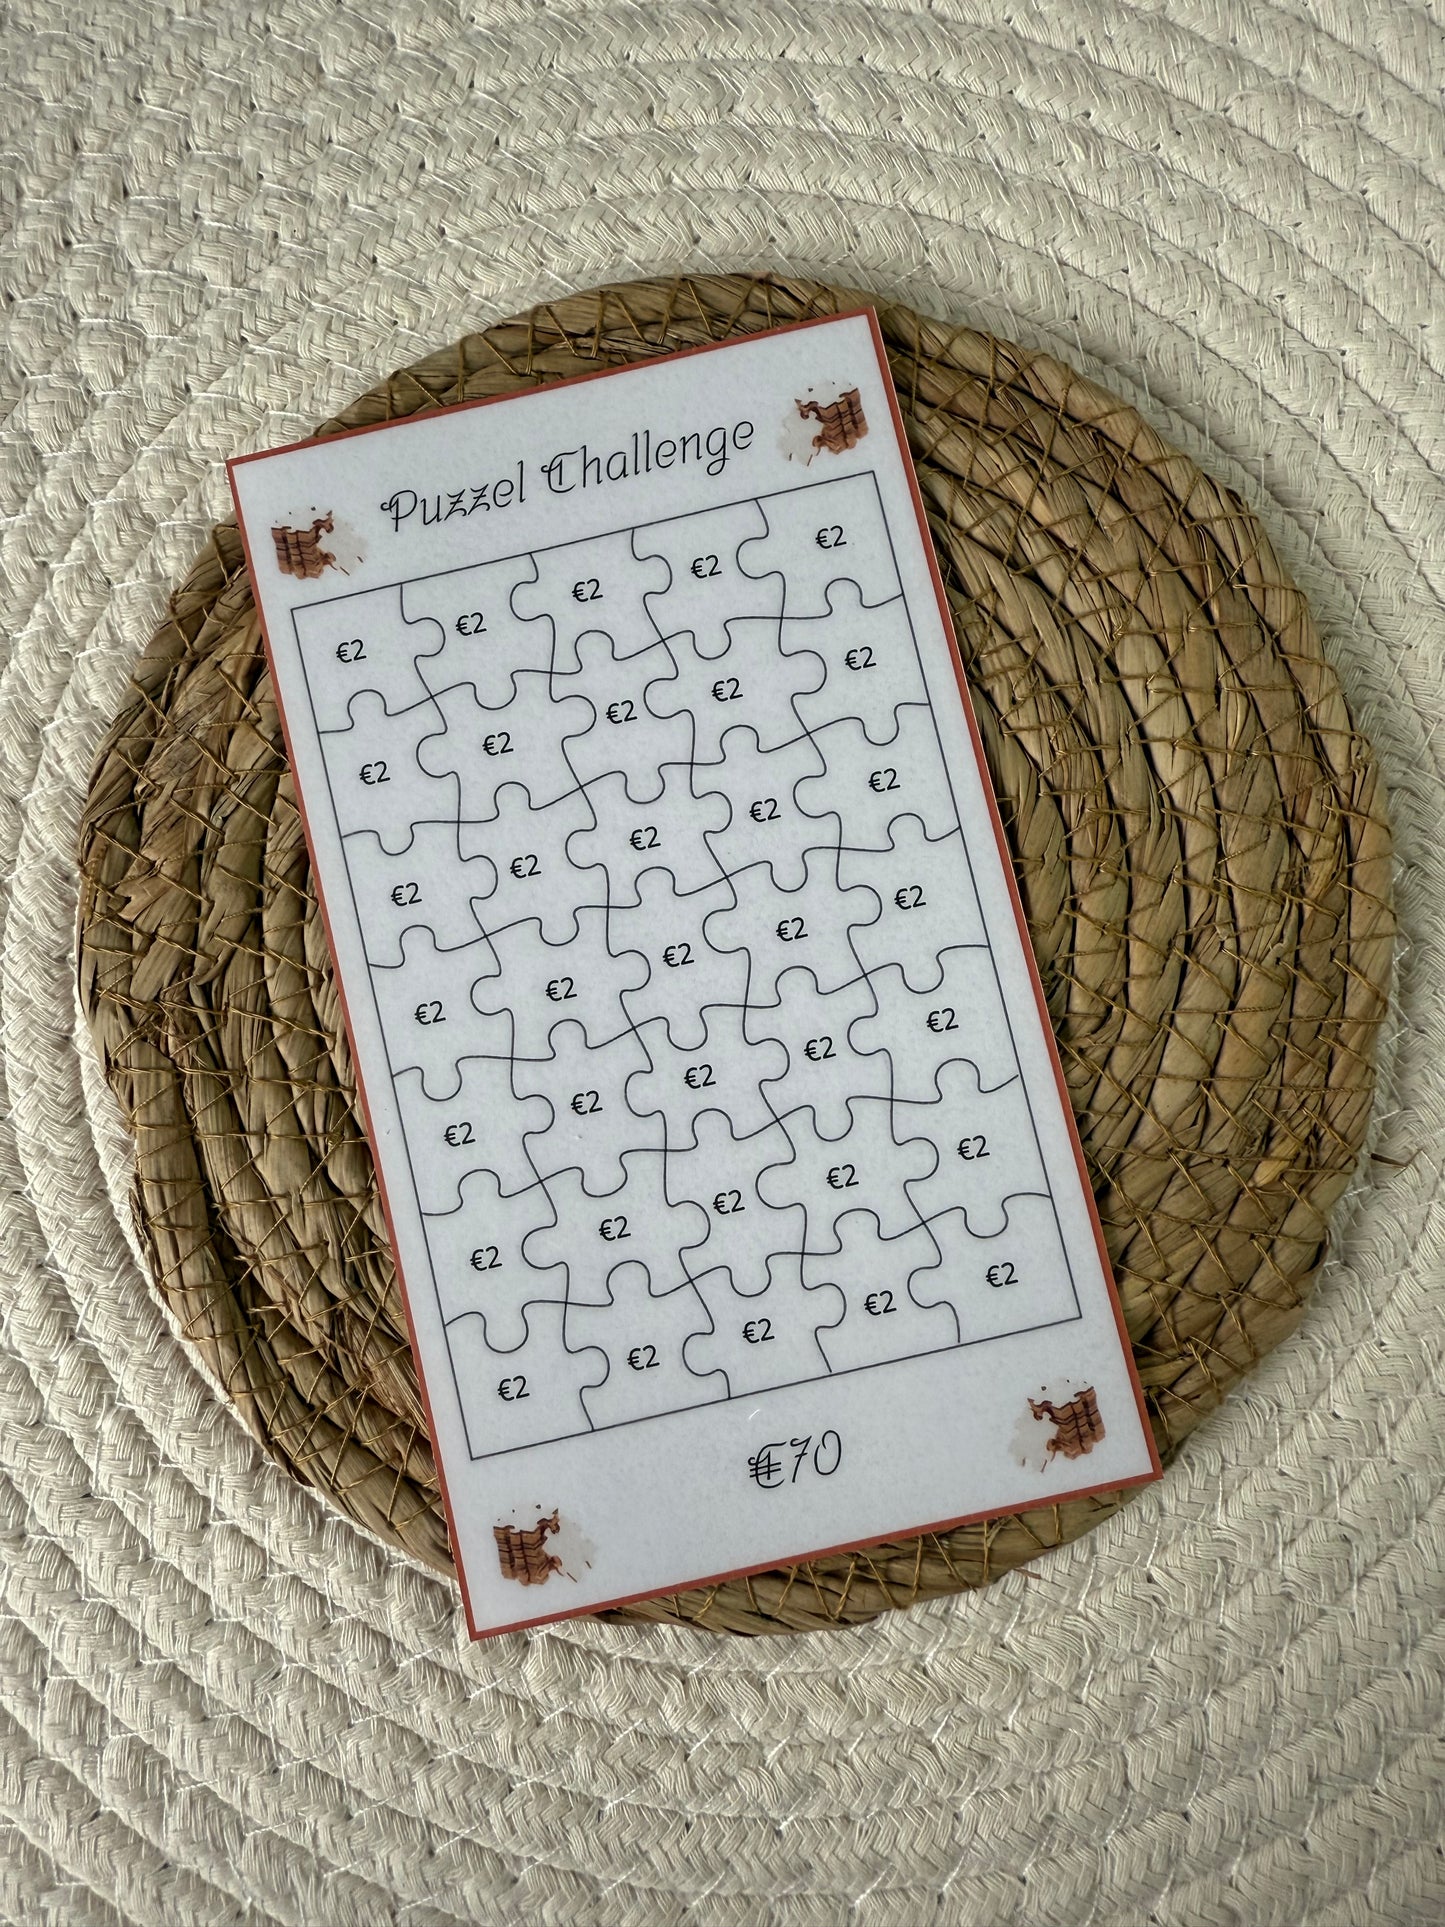 Puzzel Challenge
€2 €2 €2 €2 €2
€2 €2 €2 €2 €2
€2 €2 €2 €2 €2
€2 €2 €2 €2 €2
€2 €2 €2 €2 €2
€2 €2 €2 €2 €2
€2 €2 €2 €2 €2
€70